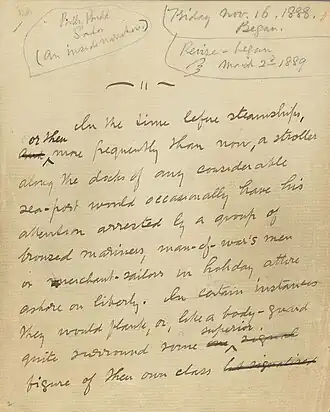 Billy Budd
Sailor
(An inside narrative)
Friday Nov. 16, 1888.
Began.
Revise – began
March 2d 1889
11
In the time before steamships,
or then more frequently than now, a stroller
along the docks of any considerable
sea-port would occasionally have his
attention arrested by a group of
bronzed mariners, man-of-war's men
or merchant-sailors in holiday attire
ashore on liberty. In certain instances
they would flank, or, like a body-guard
quite surround some superior
figure of their own class